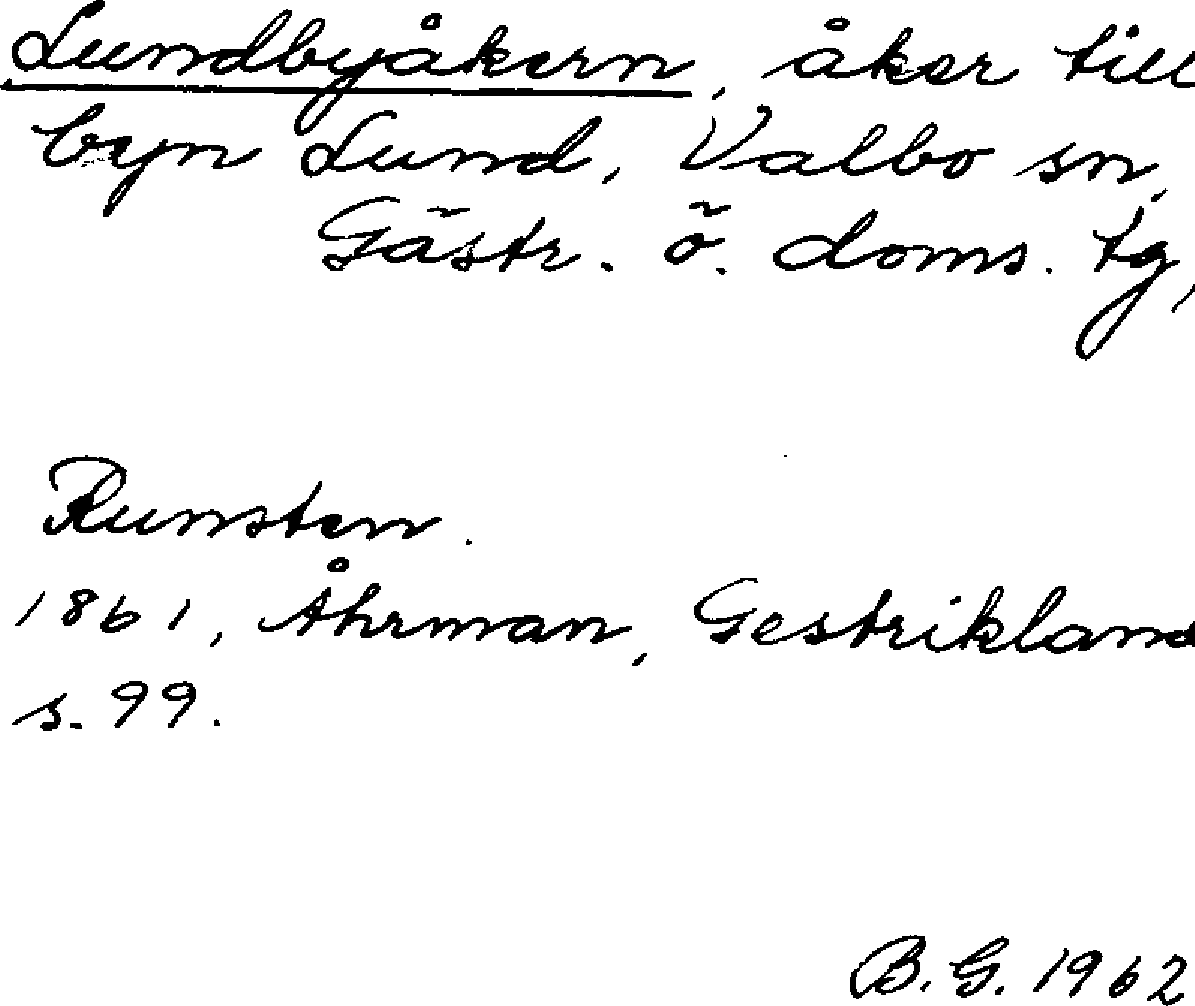 Lundbyåkern, åker till
byn Lund, Valbo sn,
Gästr. ö. doms. tg,
Runsten.
1861, Åhrman, Gestrikland
s. 99.
B. G. 1962